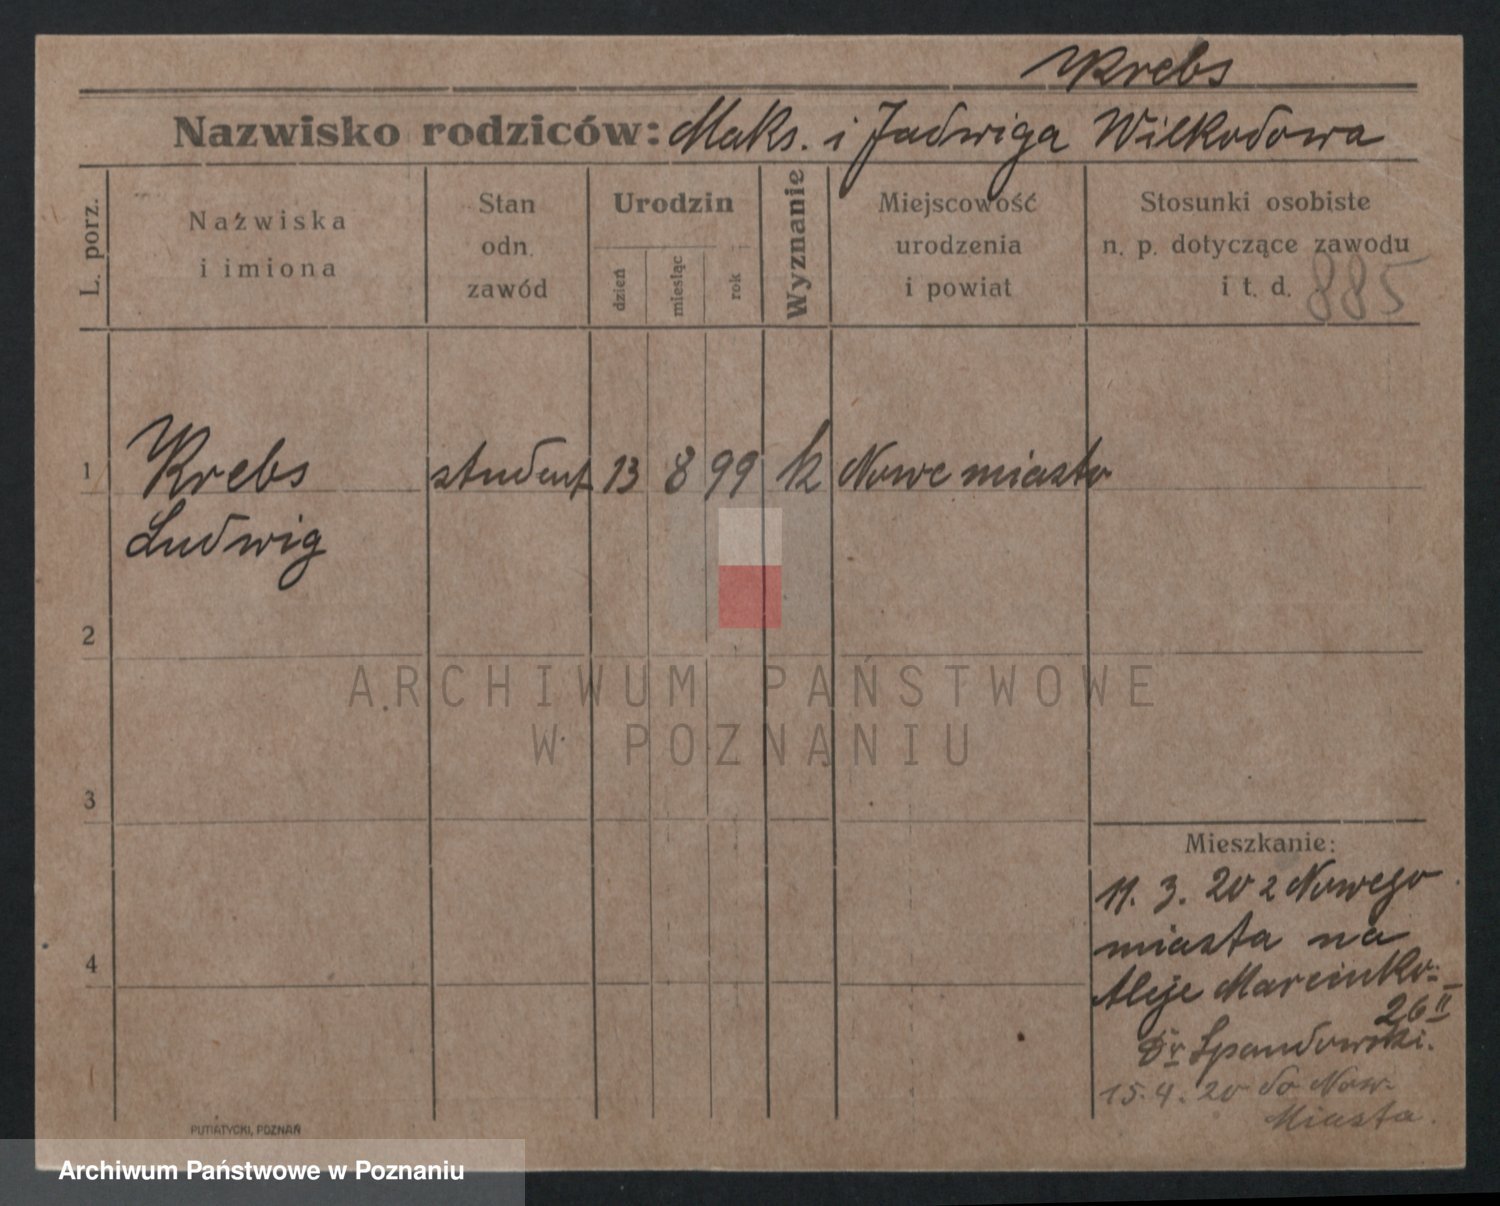 Krebs
Nazwisko rodziców: Maks. i Jadwiga Wilkodowa
L. porz.
Nazwiska
i imiona
Stan
odn.
zawód
Urodzin
dzień
miesiąc
rok
Wyznanie
Miejscowość
urodzenia
i powiat
Stosunki osobiste
n. p. dotyczące zawodu
i t. d.
885
1 Krebs student 13 8 99 k Nowe miasto
Ludwig
2
ARCHIWUM PAŃSTWOWE
W POZNANIU
3
Mieszkanie:
11. 3. 20 z Nowego
miasta na
4
Aleje Marcinko-
26 II
Dr Spandowski.
15. 4. 20 do Now-
Miasta.
PUTIATYCKI, POZNAŃ
Archiwum Państwowe w Poznaniu